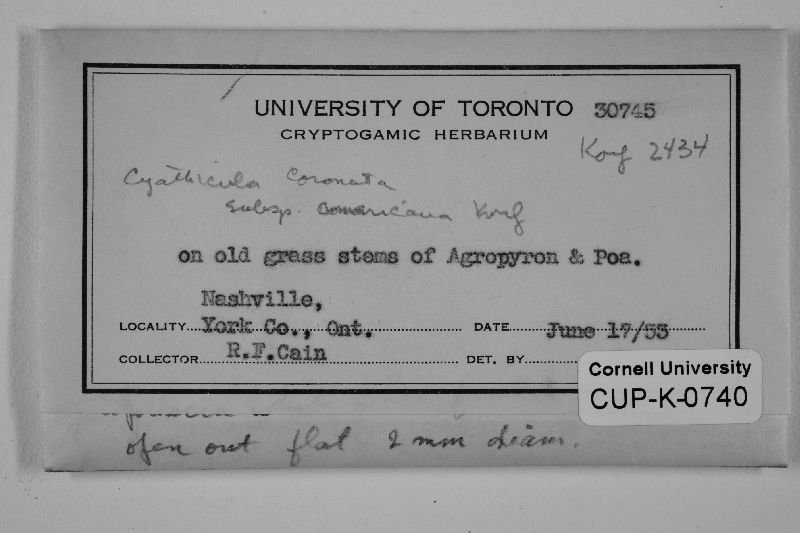 UNIVERSITY OF TORONTO 30745
CRYPTOGAMIC HERBARIUM
Korf 2434
Cyathicula coronata
subsp. americana Korf
on old grass stems of Agropyron & Poa.
Nashville,
LOCALITY York Co., Ont. DATE June 17/53
COLLECTOR R.F.Cain DET. BY
Cornell University
CUP-K-0740
open out flat 2 mm diam.